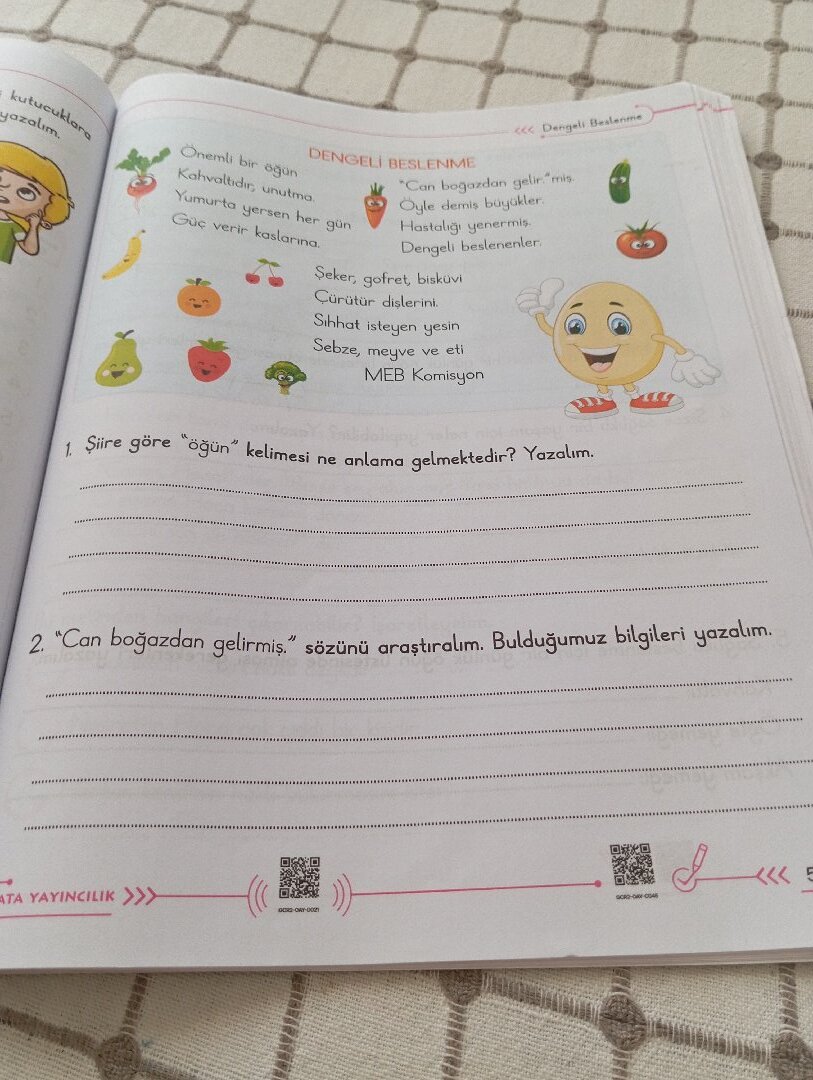 kutucuklara
yazalım.
<<< Dengeli Beslenme
DENGELİ BESLENME
Önemli bir öğün
Kahvaltıdır, unutma.
Yumurta yersen her gün
Güç verir kaslarına.
"Can boğazdan gelir."miş.
Öyle demiş büyükler.
Hastalığı yenermiş.
Dengeli beslenenler.
Şeker, gofret, bisküvi
Çürütür dişlerini.
Sıhhat isteyen yesin
Sebze, meyve ve eti
MEB Komisyon
1. Şiire göre "öğün" kelimesi ne anlama gelmektedir? Yazalım.
2. "Can boğazdan gelirmiş." sözünü araştıralım. Bulduğumuz bilgileri yazalım.
ATA YAYINCILIK >>>
<<< 5